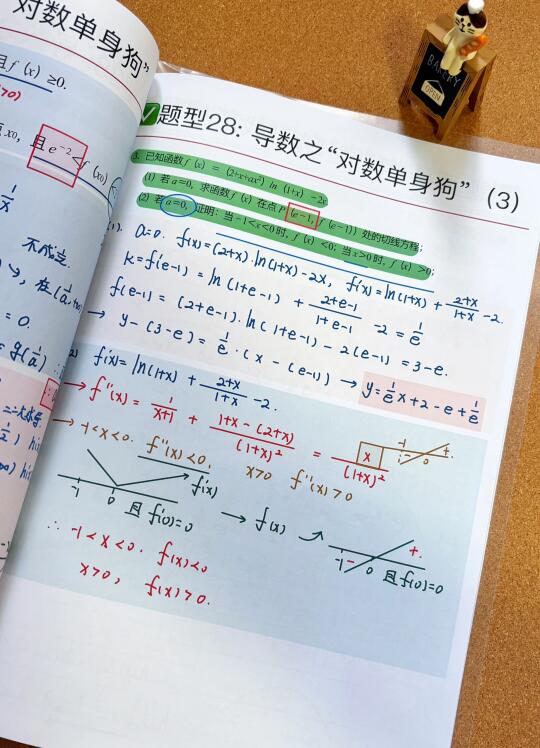 对数单身狗”
且 f (x) ≥0.
x0, 且 e⁻²< f (x0)
1/x
不成立.
= 0.
题型28: 导数之“对数单身狗” (3)
3. 已知函数 f (x) = (2+x+ax²) ln (1+x) -2x
(1) 若 a=0, 求函数 f (x) 在点 P (e-1, f (e-1)) 处的切线方程;
(2) 若 a=0, 证明: 当 -1<x<0 时, f (x) <0; 当 x>0 时, f (x) >0;
(1). a=0. f(x)=(2+x)·ln(1+x)-2x, f'(x)=ln(1+x)+ (2+x)/(1+x) -2.
k=f'(e-1) = ln(1+e-1) + (2+e-1)/(1+e-1) -2 = 1/e
f(e-1) = (2+e-1)·ln(1+e-1) - 2(e-1) = 3-e.
→ y-(3-e) = 1/e·(x-(e-1)) → y= 1/e x+2-e+ 1/e
f'(x)= ln(1+x) + (2+x)/(1+x) -2.
→ f''(x) = 1/(x+1) + (1+x-(2+x))/(1+x)² = x/(1+x)² -1 - 0 +
→ -1<x<0. f''(x)<0, x>0 f''(x)>0
-1 0 f'(x) → f(x) ↗ -1 - 0 +.
且 f'(0)=0 且 f(0)=0
∴ -1<x<0. f(x)<0
x>0, f(x)>0.
BAKERY
OPEN